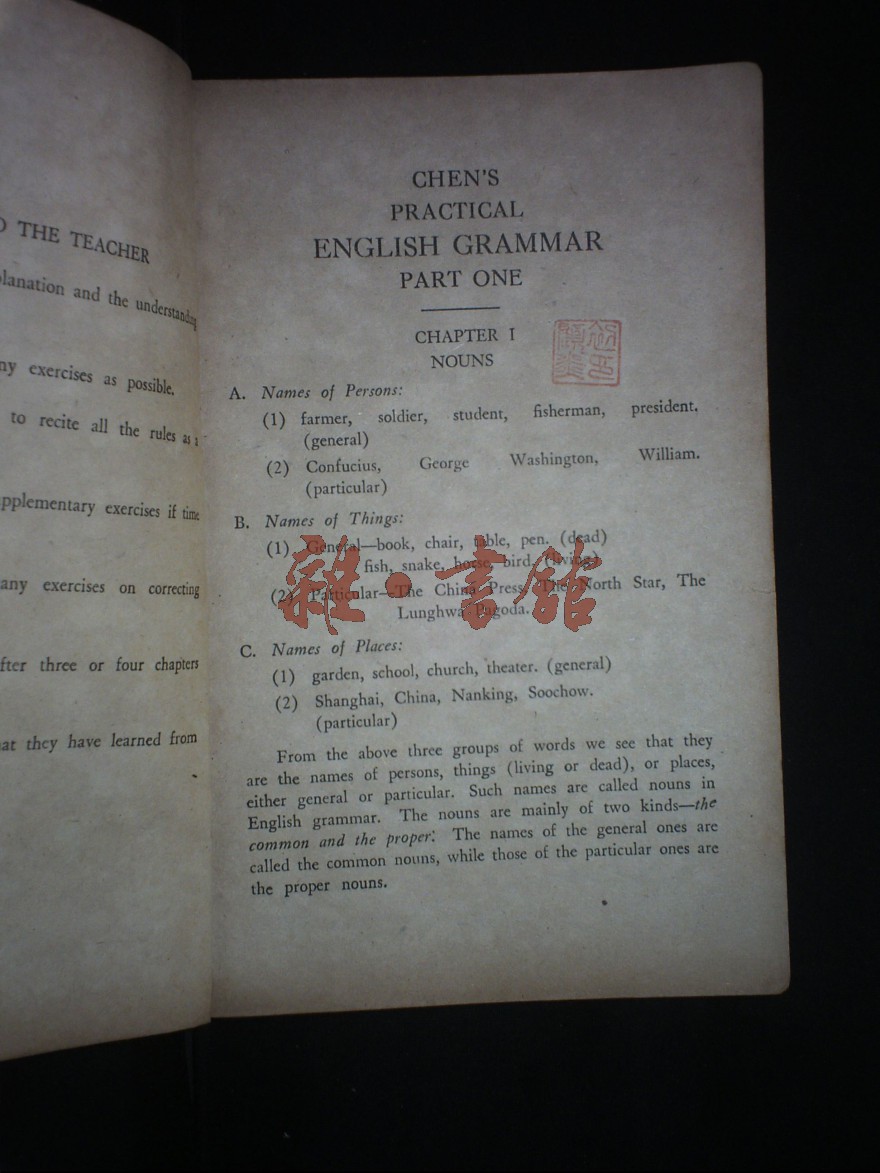 THE TEACHER
and the understanding
exercises as possible.
to recite all the rules as a
exercises if time
any exercises on correcting
three or four chapters
they have learned from
CHEN'S
PRACTICAL
ENGLISH GRAMMAR
PART ONE
CHAPTER I
NOUNS
A. Names of Persons:
(1) farmer, soldier, student, fisherman, president.
(general)
(2) Confucius, George Washington, William.
(particular)
B. Names of Things:
(1) General—book, chair, table, pen. (dead)
fish, snake, horse, bird. (living)
(2) Particular—The China Press, The North Star, The
Lunghwa Pagoda.
C. Names of Places:
(1) garden, school, church, theater. (general)
(2) Shanghai, China, Nanking, Soochow.
(particular)
From the above three groups of words we see that they
are the names of persons, things (living or dead), or places,
either general or particular. Such names are called nouns in
English grammar. The nouns are mainly of two kinds—the
common and the proper. The names of the general ones are
called the common nouns, while those of the particular ones are
the proper nouns.
雜·書館